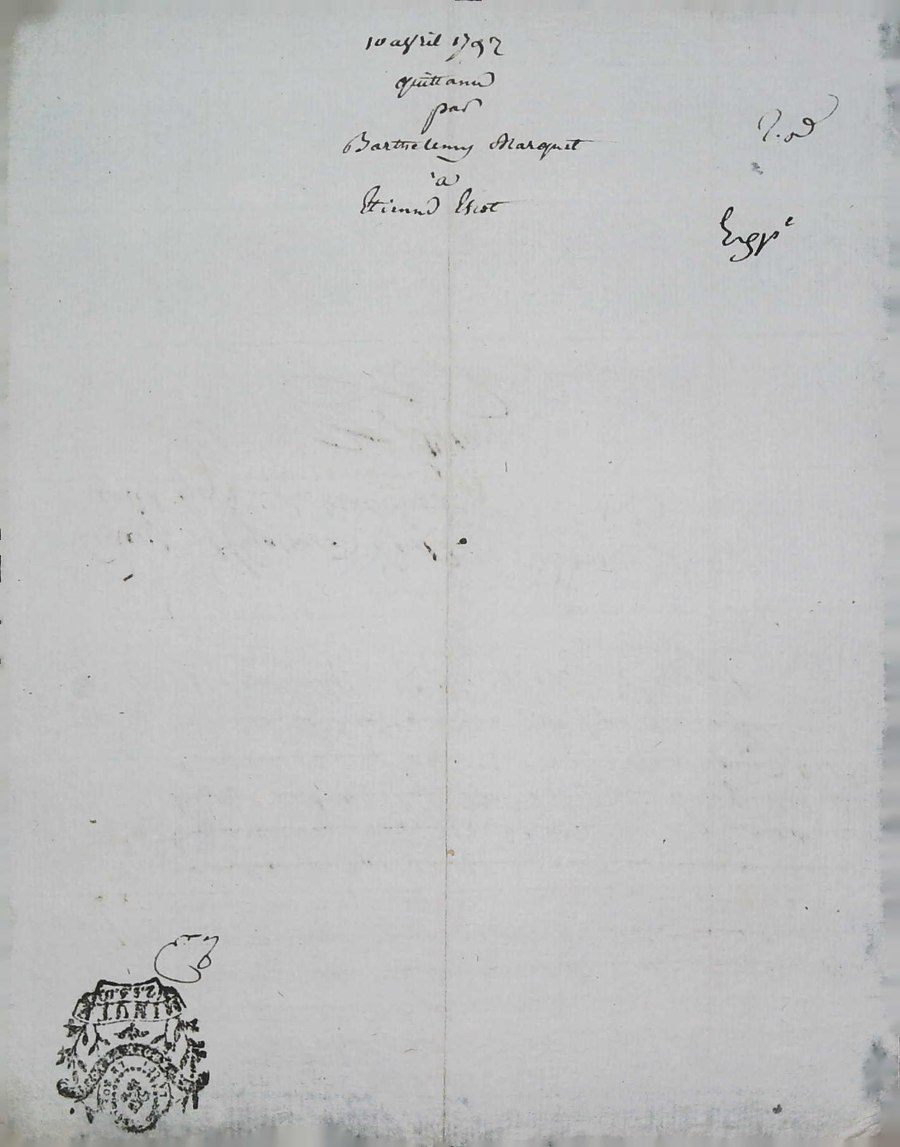 10 avril 1792
quittance
par
Barthelemy Marquet
a
Etienne Escot
Exp.é